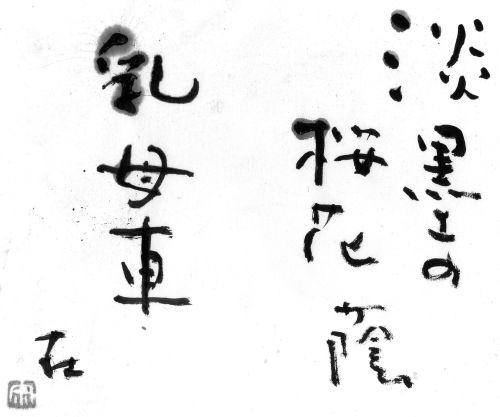 淡墨の
桜花蔭
乳母車
在